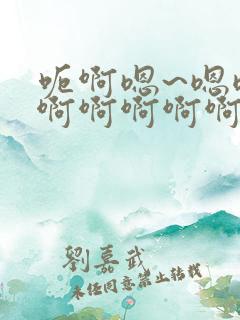 呃啊嗯~嗯
啊啊啊啊啊
劉嘉武
未经同意禁止转载